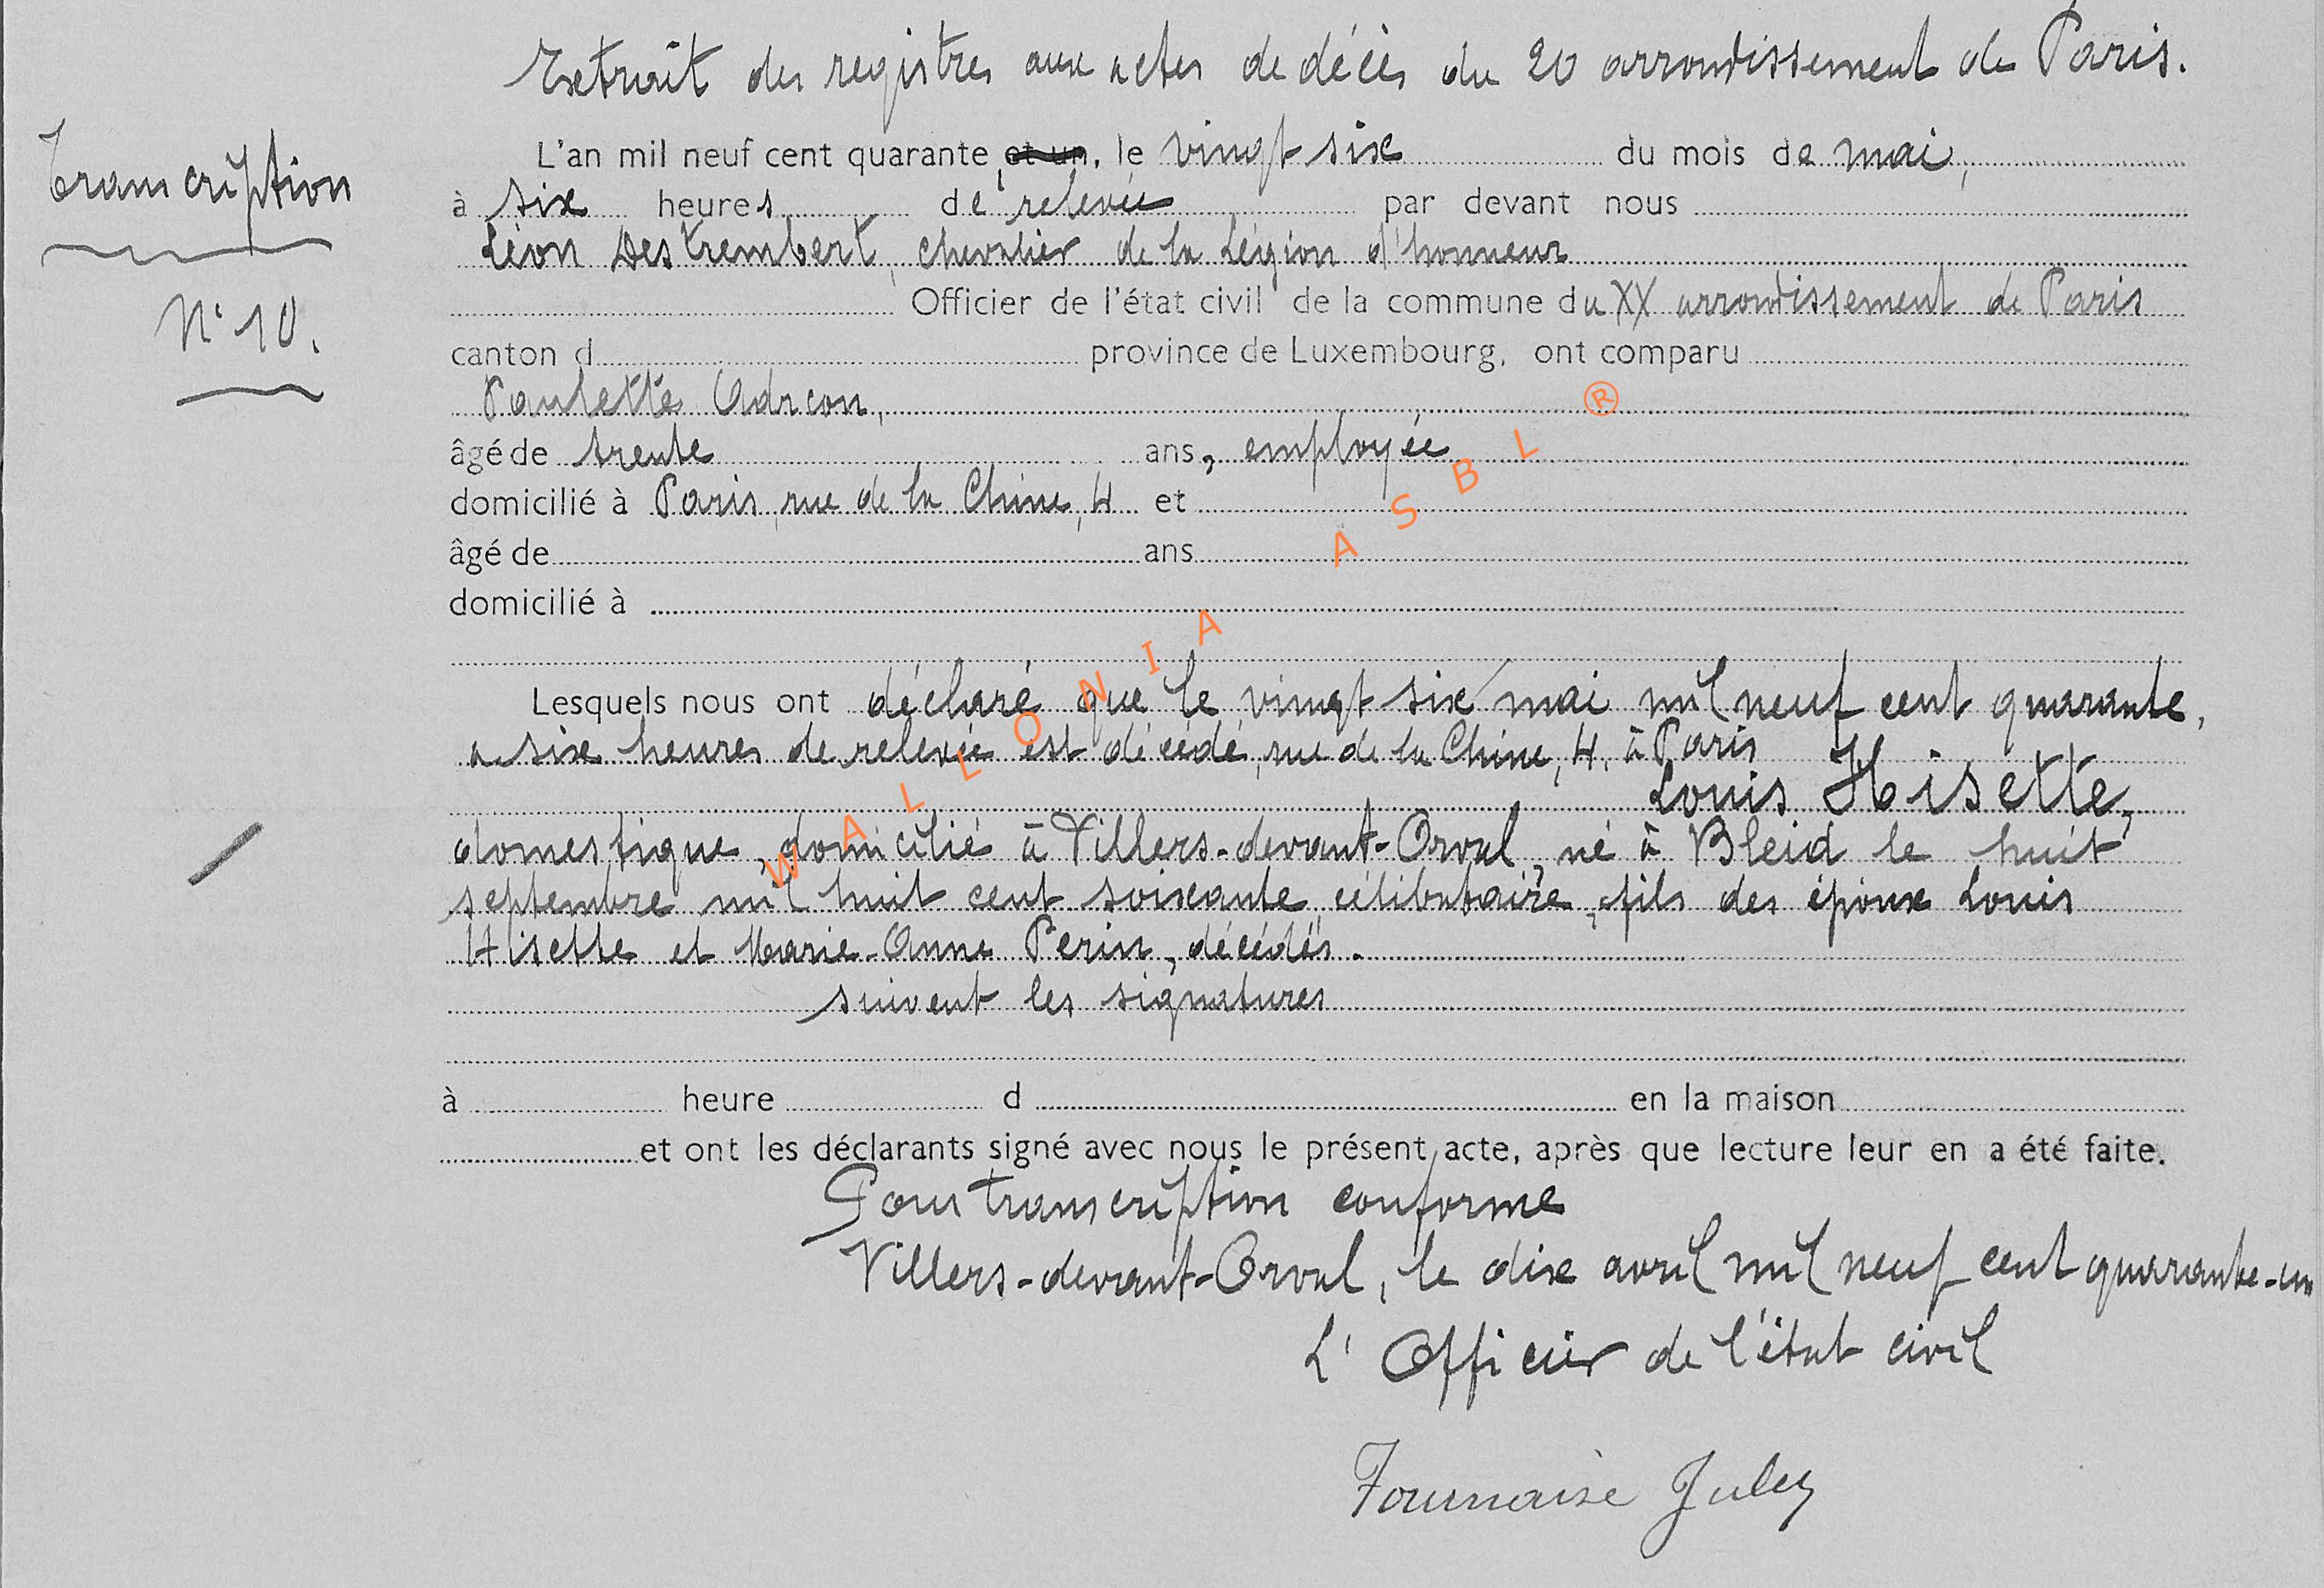 Extrait des registres aux actes de décès du 20 arrondissement de Paris.
Transcription
N° 10.
L'an mil neuf cent quarante et un, le vingt six du mois de mai,
à six heures de relevée par devant nous
Léon Destrembert, chevalier de la Légion d'honneur
Officier de l'état civil de la commune du XX arrondissement de Paris
canton d province de Luxembourg, ont comparu
Paulette Adrcon,
âgé de trente ans, employée
domicilié à Paris, rue de la Chine, 4 et
âgé de ans
domicilié à
Lesquels nous ont déclaré que le vingt six mai mil neuf cent quarante,
à six heures de relevée est décédé, rue de la Chine, 4, à Paris
Louis Hisette,
domestique, domicilié à Villers-devant-Orval, né à Bleid le huit
septembre mil huit cent soixante, célibataire, fils des époux Louis
Hisette et Marie-Anne Perin, décédés.
suivent les signatures
à heure d en la maison
et ont les déclarants signé avec nous le présent acte, après que lecture leur en a été faite.
Pour transcription conforme
Villers-devant-Orval, le dix avril mil neuf cent quarante-un
L' Officier de l'état civil
Fournaise Jules
WALLONIA ASBL ®